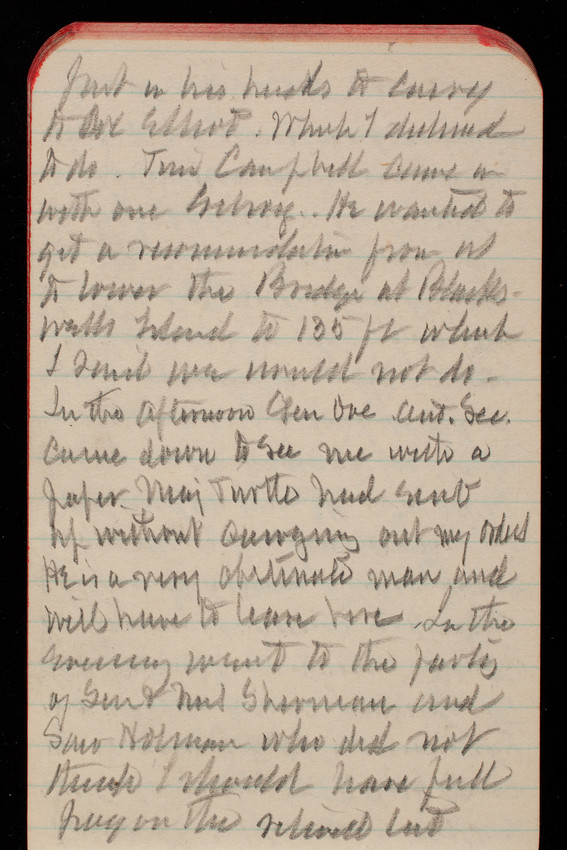 put in his hands to carry
to Elliot. Which I declined
to do. Then Campbell came in
with one. He wanted to
get a recommendation from us
to lower the Bridge at Blacks-
wells Island to 135 ft which
I said we would not do -
In the afternoon Gen Ove. Asst. Sec.
came down to see me with a
paper Maj Turtle had sent
up without carrying out my orders
He is a very obstinate man and
will have to leave here. In the
evening went to the party
of Gen & Mrs Sherman and
Saw Holman who did not
think I should have full
pay on the retired list